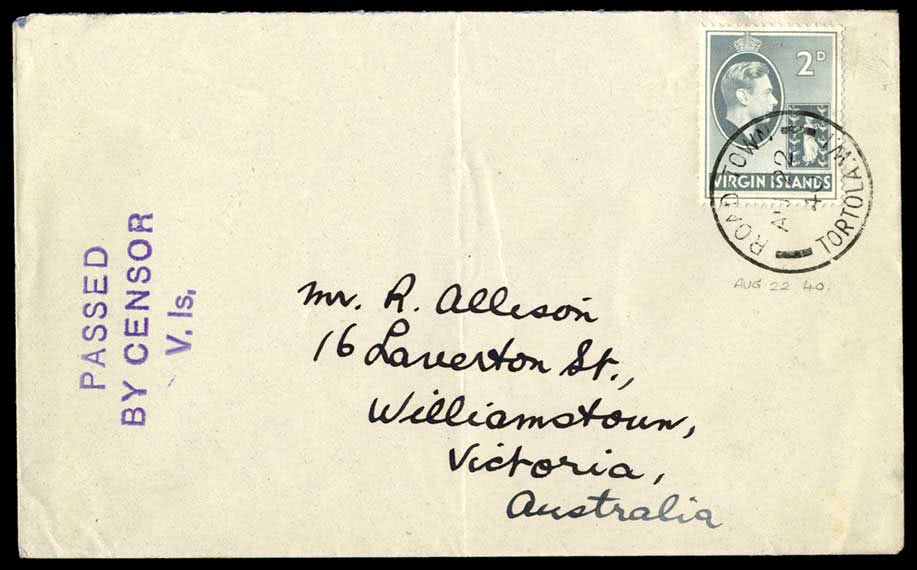 2D
VIRGIN ISLANDS
ROAD TOWN
AU 22
40
TORTOLA.W.I
AUG 22 40.
PASSED
BY CENSOR
V. Is.
Mr. R. Allison
16 Laverton St.,
Williamstown,
Victoria,
Australia